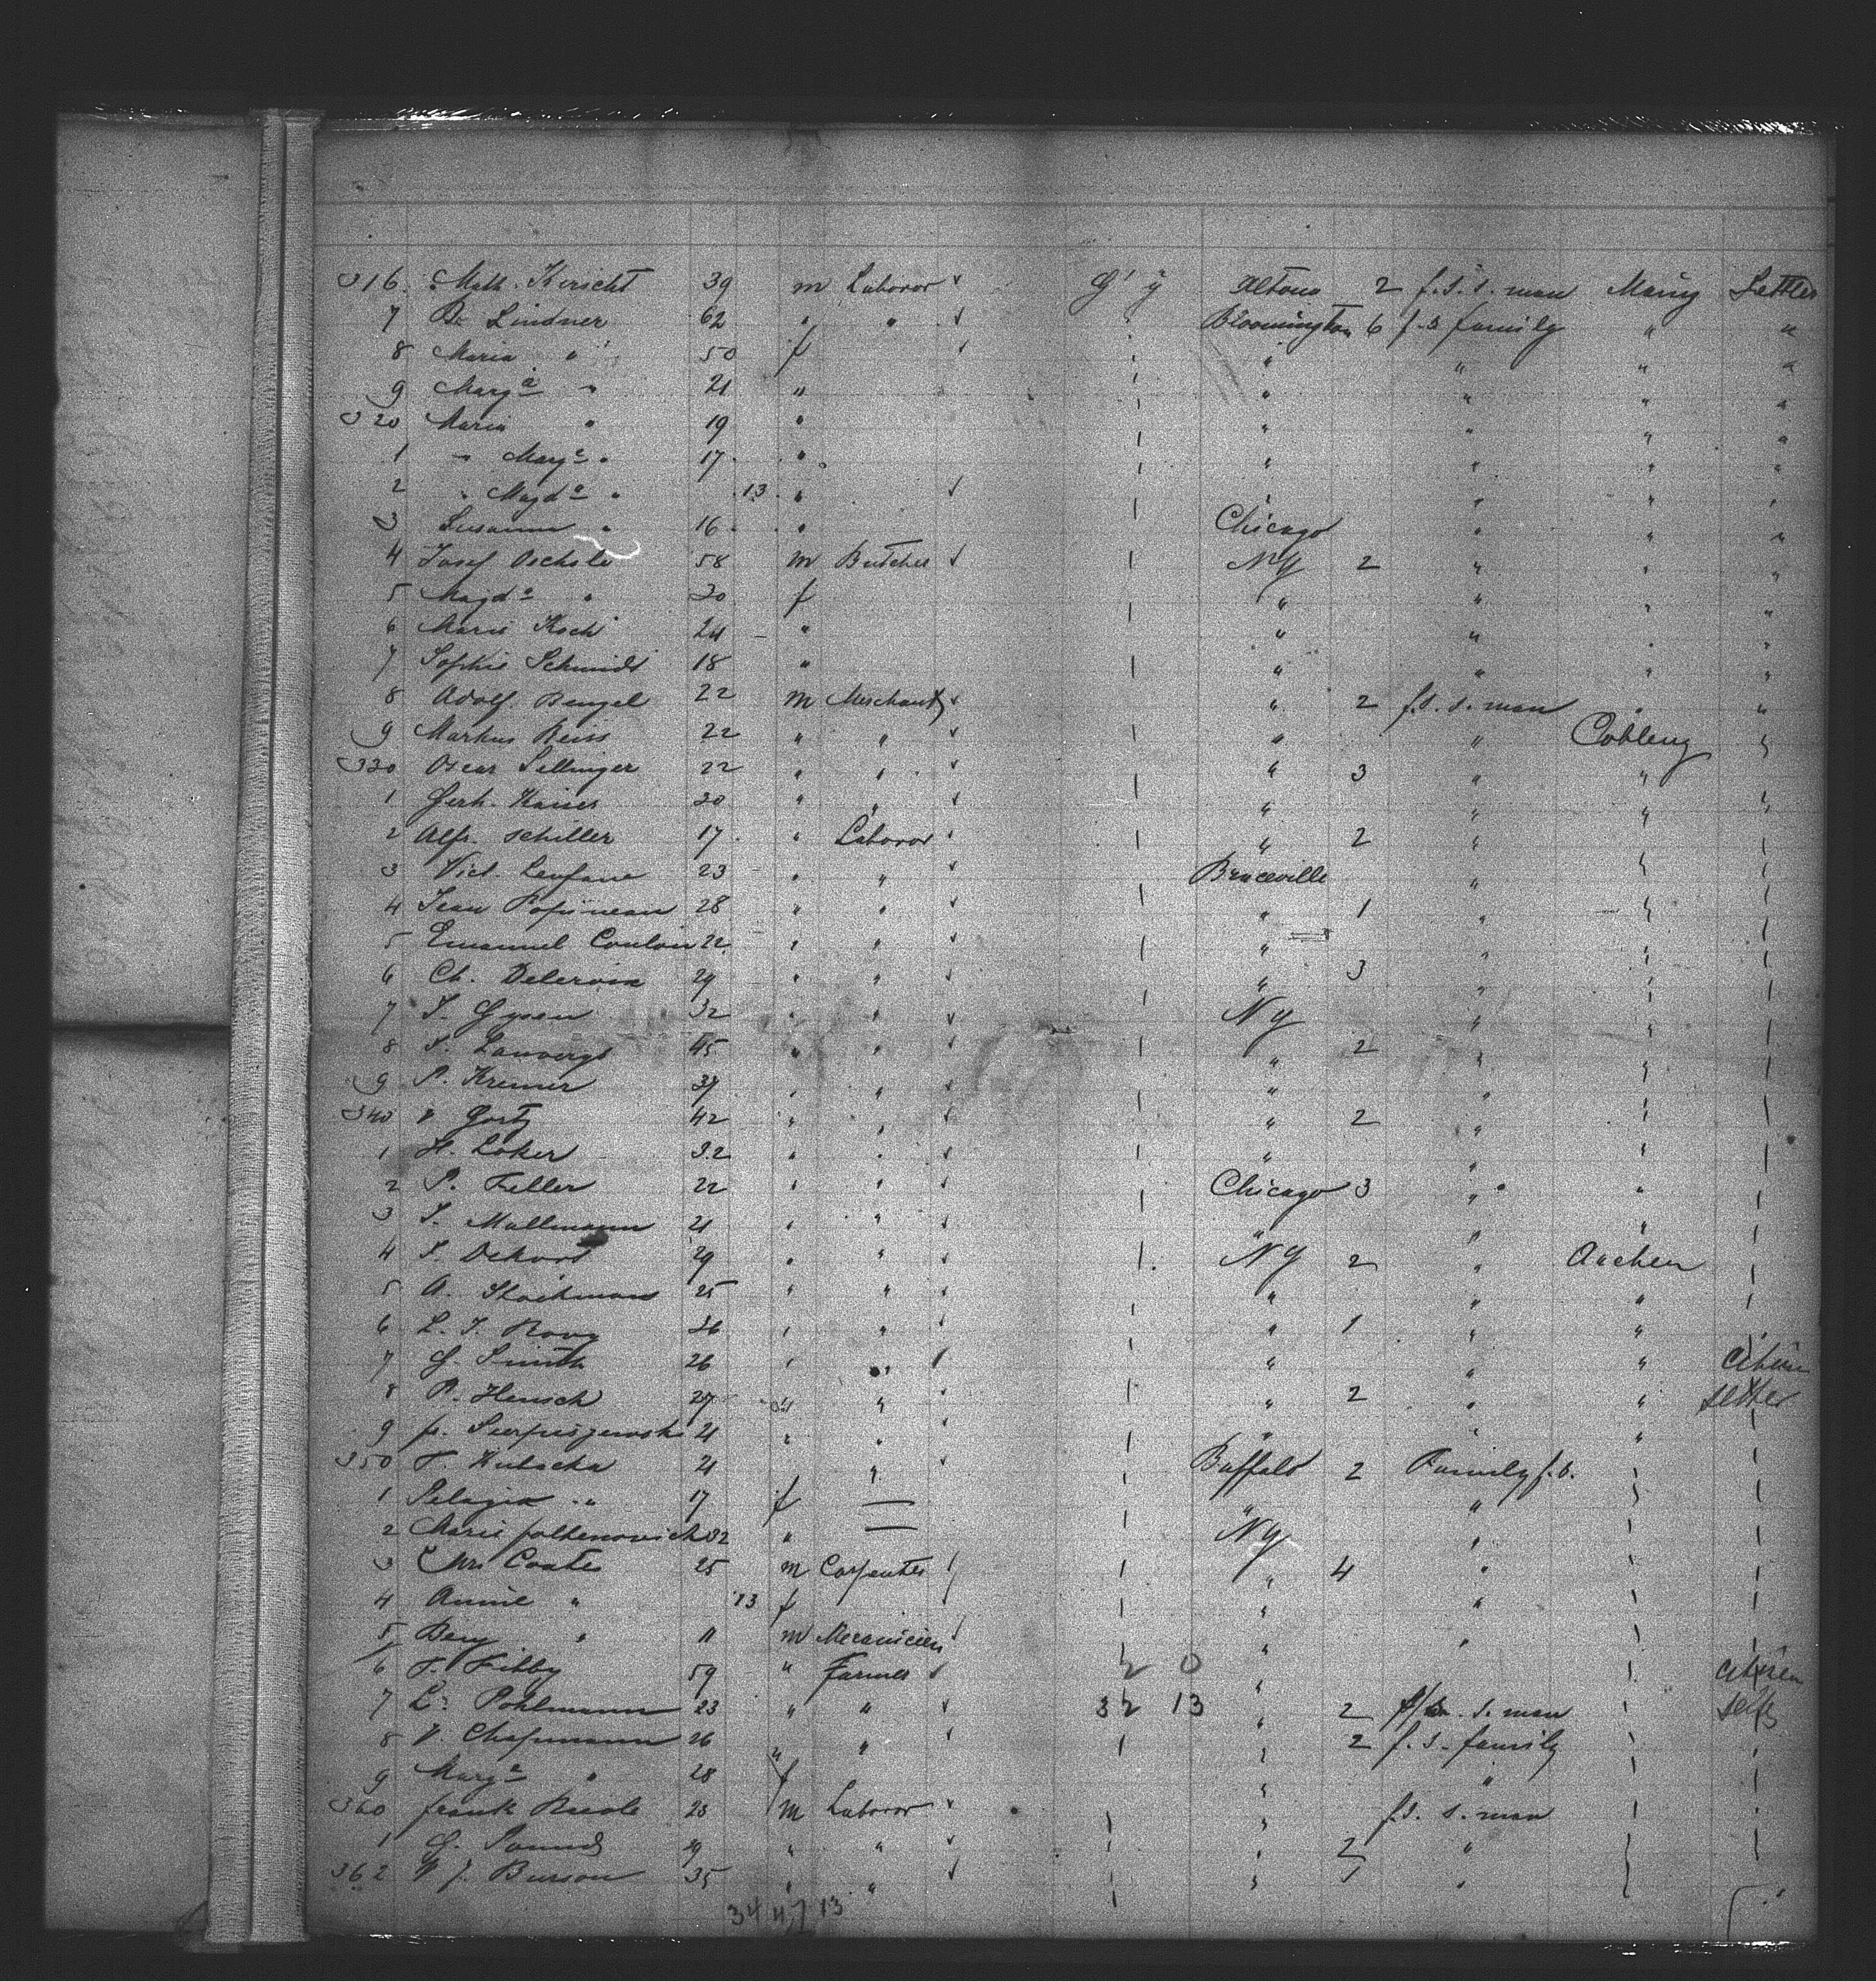 316. Math. Kerscht 39 m Laborer ✓ G'y Altona 2 f.s. s. man Mainz Settler
7 Be Lindner 62 " " ✓ Bloomington 6 f.s family " "
8 Maria " 50 f ✓ " " " "
9 Marg.a " 21 " " " " "
320 Maria " 19 " " " " "
1 " Marg.a " 17 " " " " "
2 " Magd.a " 13 " ✓ " " " "
3 Susanna " 16 " Chicago " " "
4 Josef Oechsle 58 m Butcher ✓ NY 2 " " "
5 Magd.a " 20 f " " " "
6 Marie Koch 24 " " " " "
7 Sophie Schmidt 18 " " " " "
8 Adolf Bengel 22 m Merchant ✓ " 2 f.s. s. man " "
9 Markus Reiss 22 " " ✓ " " Coblenz "
330 Oscar Sellinger 22 " " ✓ " 3 " " "
1 Gerh. Kaiser 30 " " ✓ " " " "
2 Alfr. Schiller 17 " Laborer " 2 " "
3 Vict. Lenfane 23 " " ✓ Braceville " "
4 Jean Popineau 28 " " ✓ " 1 " "
5 Emanuel Coulon 22 " " ✓ " " "
6 Ch. Deleroix 29 " " ✓ " 3 " "
7 J. Gysen 32 " " ✓ NY " "
8 P. Lauvergs 45 " " ✓ " 2 " "
9 P. Kremer 37 " " ✓ " " "
340 V Gortz 42 " " ✓ " 2 " "
1 H. Loker 32 " " ✓ " " "
2 P. Feller 22 " " ✓ Chicago 3 " "
3 J. Mallmann 21 " " ✓ " " "
4 J. Dekort 29 " " ✓ NY 2 " Aachen
5 A. Stockmans 25 " " ✓ " " "
6 L. J. Rony 36 " " ✓ " 1 " "
7 G. Smith 26 " " " " " Citizen
8 P. Hensch 27 " " " 2 " " Settler
9 fr. 21 " " " " "
350 T. Kubacka 21 " ✓ Buffalo 2 Family f.s.
1 Pelagia " 17 f — " "
2 Marie 32 " — NY "
3 Wm Coates 25 m Carpenter " 4 "
4 Annie " 13 f " "
5 Beny " 11 m Mecanicien " "
6 T. Fibby 59 " Farmer ✓ 2 0 " Citizen
7 L. Pohlmann 23 " " ✓ 32 13 " 2 s. man
8 V. Chapmann 26 " " ✓ " 2 f.s. family
9 Marg.a " 28 f " "
360 frank 23 m Laborer ✓ " f.s. s. man
1 G. Pound 29 " " ✓ " 2 "
362 W J. Burson 35 " " ✓ " 1 "
34 47 13